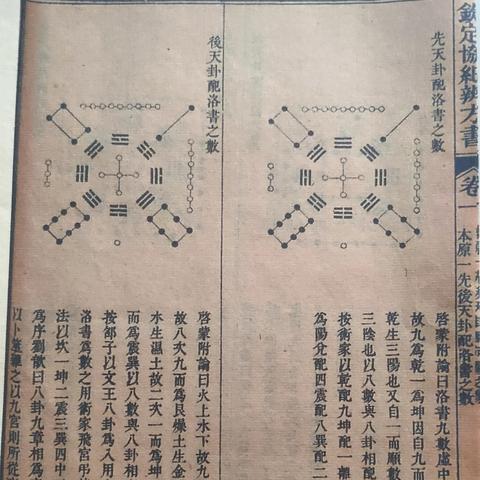 欽定協紀辨方書
卷一
本原一先後天卦配洛書之數
先天卦配洛書之數
啓蒙附論曰洛書九數虛中
故九為乾一為坤因自九而
乾生三陽也又自一而順數
三陰也以八數與八卦相配
按術家以乾配九坤配一離
為陽兌配四震配八巽配二
後天卦配洛書之數
啓蒙附論曰火上水下故九
故八次九而為艮燥土生金
水生濕土故二次一而為坤
而為震巽以八數與八卦相
按邵子以文王八卦為入用
洛書為數之用術家飛宮弔
法以坎一坤二震三巽四中
為序劉歆曰八卦九章相為
以卜筮之以九宮則所從